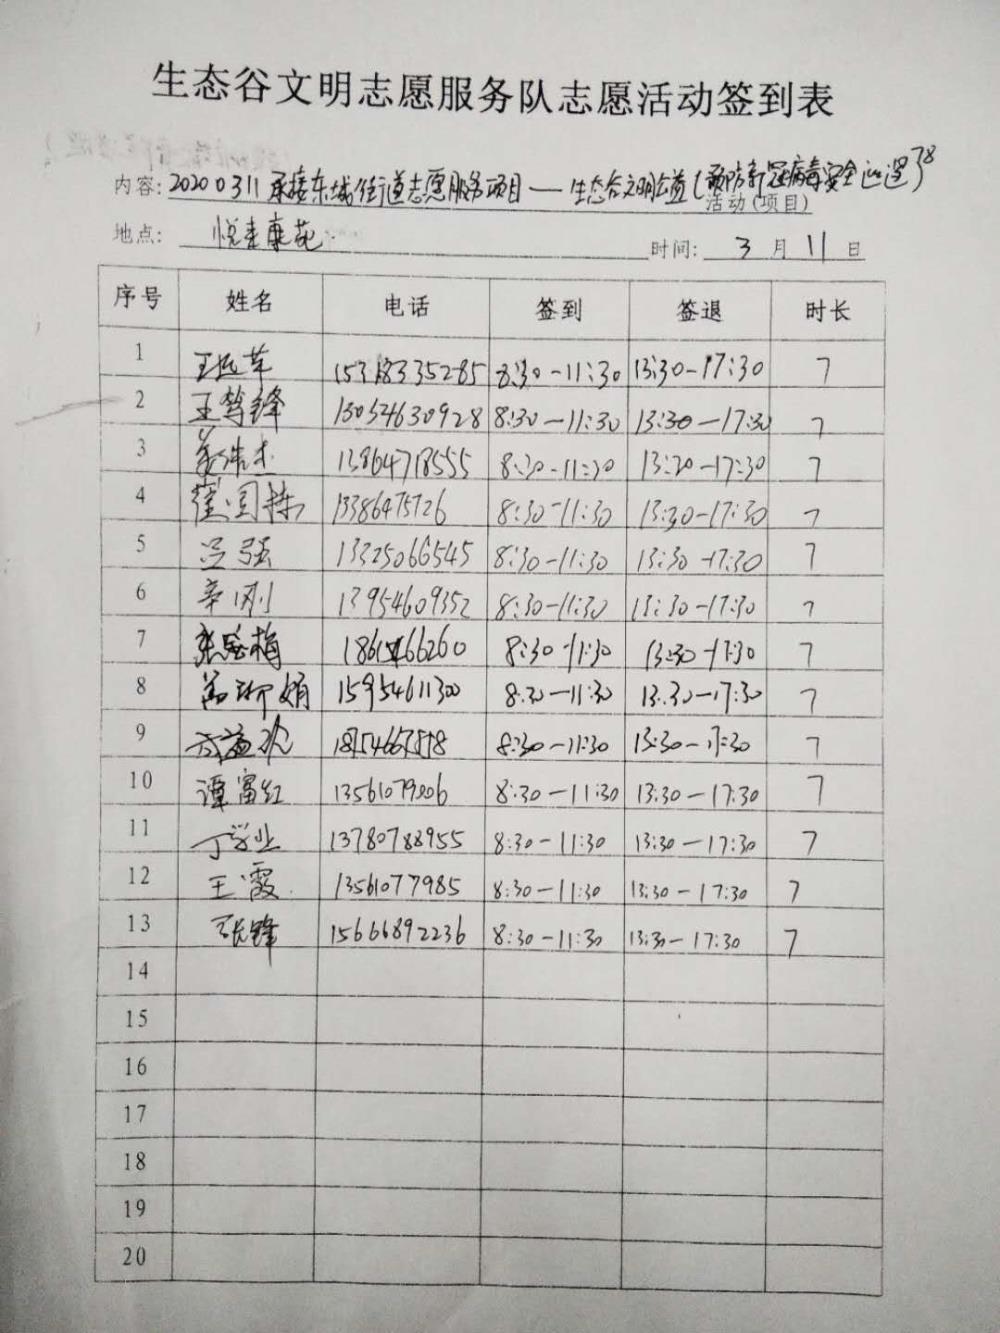 生态谷文明志愿服务队志愿活动签到表
内容: 20200311承接东城街道志愿服务项目——生态谷文明公益(预防新冠病毒安全巡逻)78
活动(项目)
地点: 悦来康苑 时间: 3月11日
序号 姓名 电话 签到 签退 时长
1 15318335285 8:30-11:30 13:30-17:30 7
2 13054630928 8:30-11:30 13:30-17:30 7
3 13864718555 8:30-11:30 13:20-17:30 7
4 崔国栋 13386475726 8:30-11:30 13:30-17:30 7
5 吕强 13325066545 8:30-11:30 13:30-17:30 7
6 辛刚 13954609352 8:30-11:30 13:30-17:30 7
7 8:30-11:30 13:30-17:30 7
8 15954611300 8:30-11:30 13:30-17:30 7
9 8:30-11:30 13:30-17:30 7
10 谭富红 13561079806 8:30-11:30 13:30-17:30 7
11 丁学业 13780788955 8:30-11:30 13:30-17:30 7
12 王霞 13561077985 8:30-11:30 13:30-17:30 7
13 张锋 15666892236 8:30-11:30 13:30-17:30 7
14
15
16
17
18
19
20